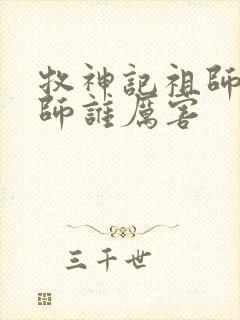 牧神記祖師
師誰厲害
三千世